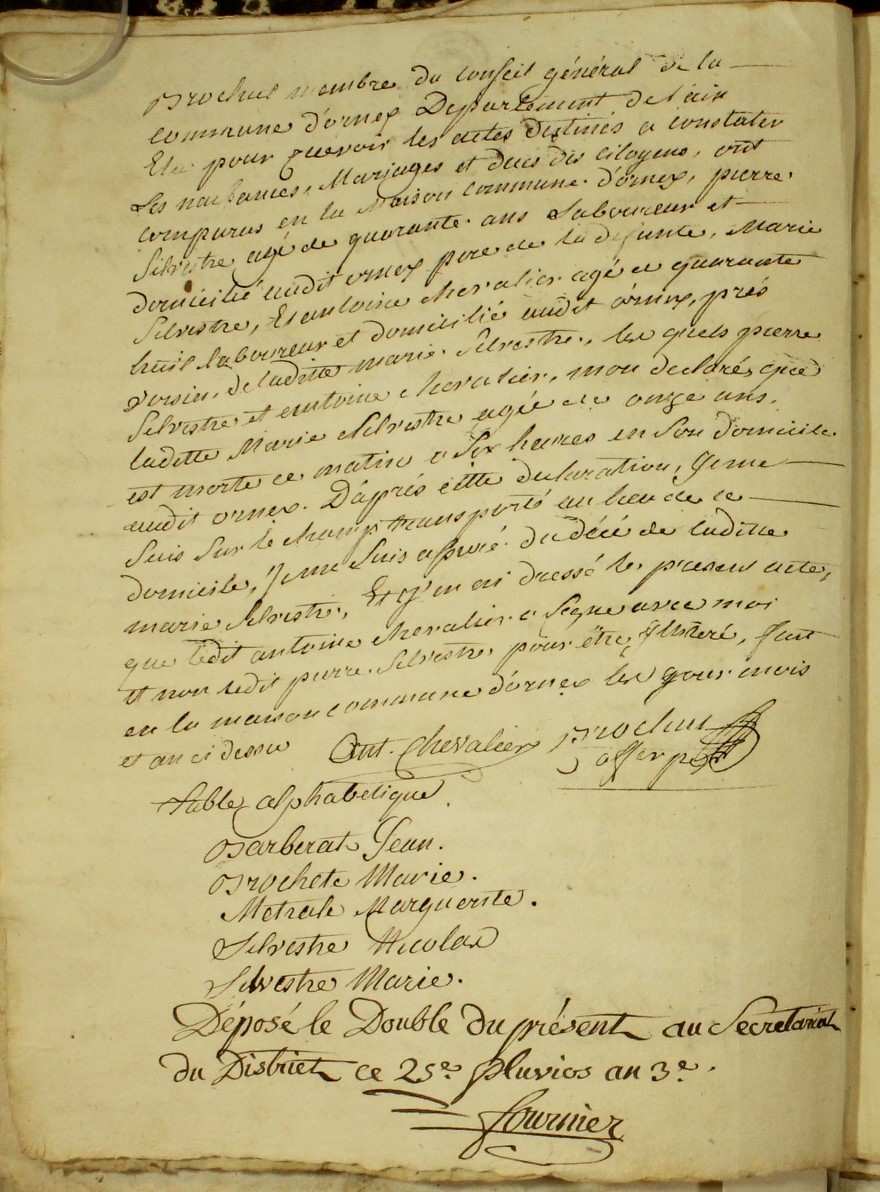 Brochut membre du Conseil général de la
Commune d'ornex Departement de l'ain
Elu pour recevoir les actes destinés a constater
les naissances, Mariages et deces des Citoyens, ont
comparus en la Maison Commune d'ornex, pierre
Silvestre agé de quarante ans Laboureur et
domicilié audit ornex pere de la defunte, Marie
Silvestre, Et antoine chevalier agé de quarante
huit laboureur et domicilié audit ornex, prés
voisin, de laditte marie Silvestre, les quels pierre
Silvestre et antoine chevalier, mon declaré, que
ladette Marie Silvestre agée de onze ans,
est morte ce matin a Six heures en Son domicile
audit ornex. D'aprés cette declaration, Je me
Suis Sur le champ transporté au lieu de ce
domicile, Je me Suis assuré du décé de laditte
marie Silvestre, Et j'en ai dressé le present acte,
que ledit antoine chevalier a Signé avec moi
et non ledit pierre Silvestre pour être Illitéré, fait
en la maison commune d'ornex les jour mois
et an ci dessu Ant. Chevalier Brochut
off. p.
Table alphabetique
Barberat Jean.
Brochete Marie.
Metrale Marguerite.
Silvestre Nicolas
Silvestre Marie.
Déposé le Double du présent au Secretariat
du District ce 25e. pluvios an 3e.
fournier